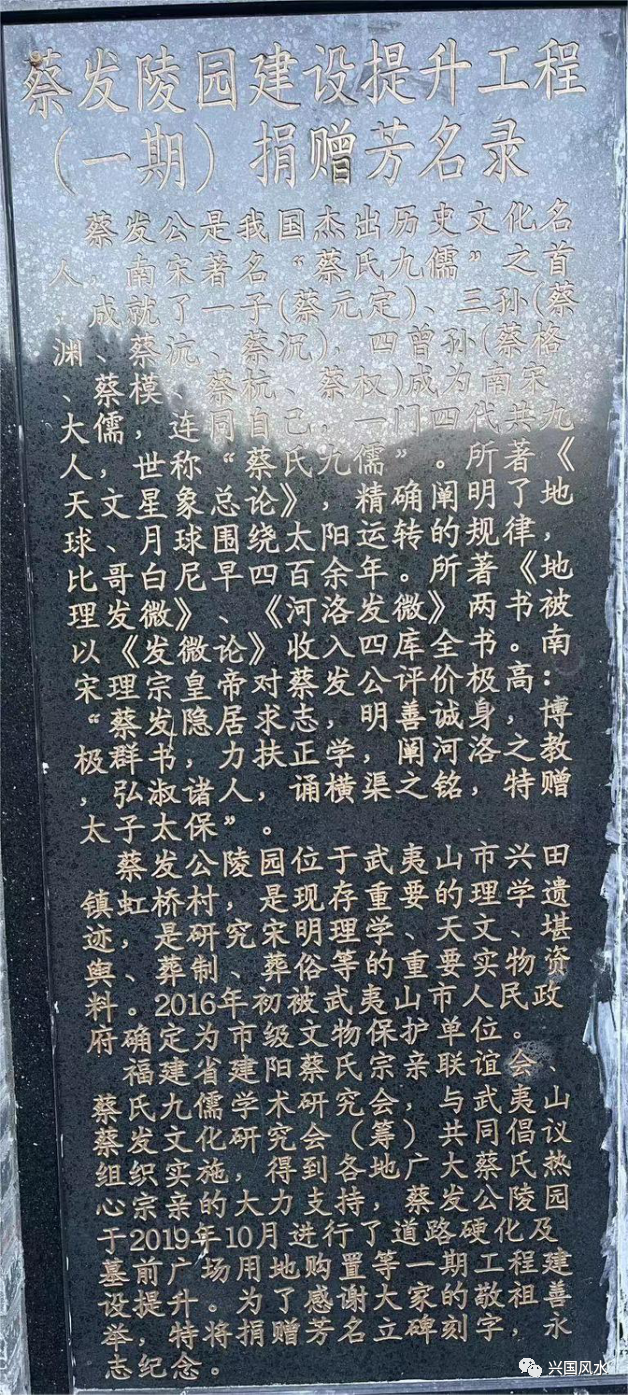 蔡发陵园建设提升工程
（一期）捐赠芳名录
蔡发公是我国杰出历史文化名
人，南宋著名“蔡氏九儒”之首
，成就了一子(蔡元定)、三孙(蔡
渊、蔡沆、蔡沉)、四曾孙(蔡格
、蔡模、蔡杭、蔡权)成为南宋
大儒，连同自己，一门四代共九
人，世称“蔡氏九儒”。所著《
天文星象总论》，精确阐明了地
球、月球围绕太阳运转的规律，
比哥白尼早四百余年。所著《地
理发微》、《河洛发微》两书被
以《发微论》收入四库全书。南
宋理宗皇帝对蔡发公评价极高：
“蔡发隐居求志，明善诚身，博
极群书，力扶正学，阐河洛之教
，弘淑诸人，诵横渠之铭，特赠
太子太保”。
蔡发公陵园位于武夷山市兴田
镇虹桥村，是现存重要的理学遗
迹，是研究宋明理学、天文、堪
舆、葬制、葬俗等的重要实物资
料。2016年初被武夷山市人民政
府确定为市级文物保护单位。
福建省建阳蔡氏宗亲联谊会、
蔡氏九儒学术研究会，与武夷山
蔡发文化研究会（筹）共同倡议
组织实施，得到各地广大蔡氏热
心宗亲的大力支持，蔡发公陵园
于2019年10月进行了道路硬化及
墓前广场用地购置等一期工程建
设提升。为了感谢大家的敬祖善
举，特将捐赠芳名立碑刻字，永
志纪念。
兴国风水